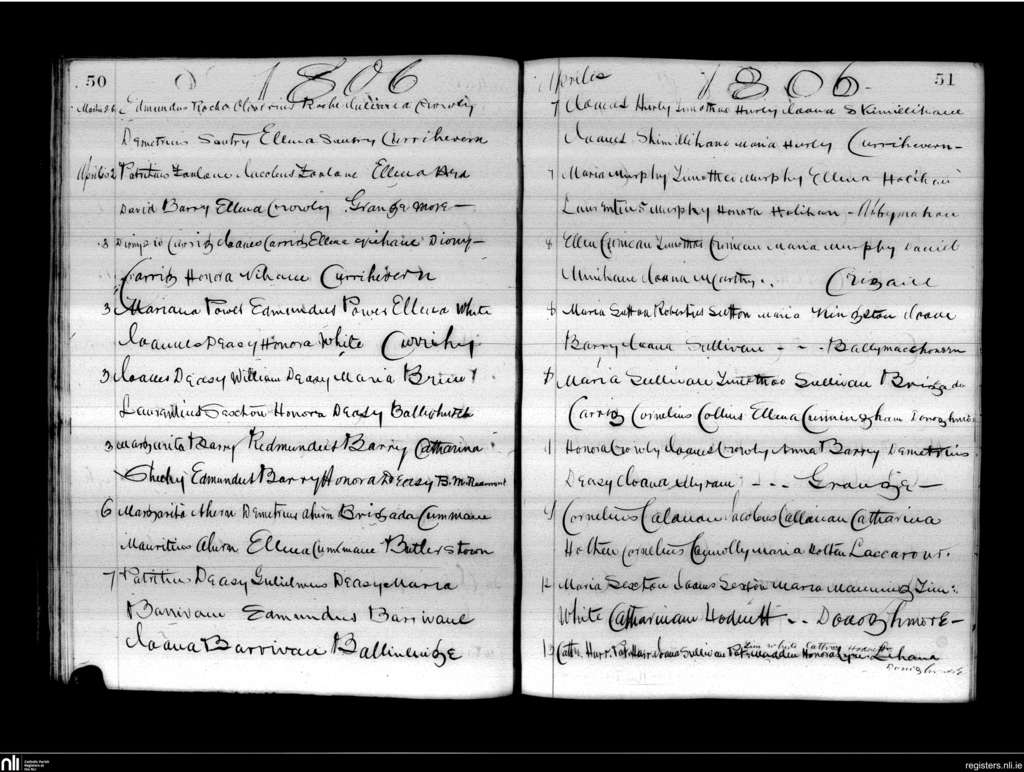 50
1806
Martius 26 Edmundus Roche Oliverius Roche Crowly
Demetrius Santry Ellena Santry Currihevern
Aprilis 2 Patritius Lanlane Jacobus Lanlane Ellena
David Barry Ellena Crowly Grange more —
3 Carrig Joanes Carrig Ellena Diony—
Carrig Honora Nihane Currihevern
3 Mariana Power Edmundus Power Ellena White
Joannes Deasy Honora White Currihy
3 Joanes Deasy William Deasy Maria Brien
Laurentius Sexton Honora Deasy
3 Margarita Barry Redmundus Barry Catharina
Sheehy Edmundus Barry Honora Deasy
6 Margarita Ahern Demetrius Ahern Brigada Cummane
Mauritius Ahern Ellena Cummane Butlerstown
7 Patritius Deasy Gulielmus Deasy Maria
Barrivane Edmundus Barrivane
Joana Barrivan
Aprilis 1806 51
7 Joanes Hurly Timotheus Hurly Joana Skimillihane
Joanes Skimillihane Maria Hurly Currihevern —
7 Maria Murphy Timotheus Murphy Ellena Holihan
Laurentius Murphy Honora Holihan - Abbymahon
8 Ellen Crimean Timotheus Crimean Maria Murphy Daniel
Minihane Joana McCarthy
8 Maria Sutton Robertus Sutton Maria Joane
Barry Joana Sullivan - - -
Maria Sullivan Timotheo Sullivan Brigada
Carrig Cornelius Collins Ellena Cunningham Donoghmore
11 Honora Crowly Joanes Crowly Anna Barry Demetrius
Deasy Joana - - - Grange —
Cornelius Calanan Jacobus Callanan Catharina
Holten Cornelius Connolly Maria Holten
12 Maria Sexton Joanes Sexton Maria Manning Tim:
White Catharinam Hodnett - - Donoghmore —
13 Cath: Hurr Joana Sullivan Honora Lihana
Tim White Cathrin Hodnett
nli
Catholic Parish
Registers at
the NLI
registers.nli.ie